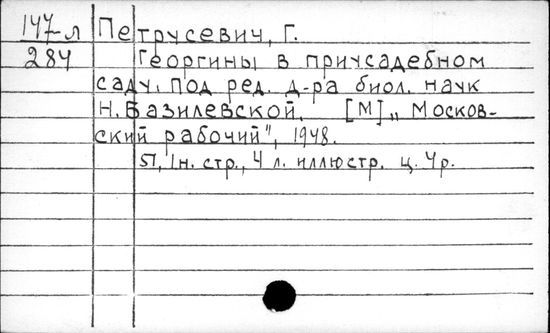 147-л Петрусевич, Г.
284 Георгины в приусадебном
саду. Под ред. д-ра биол. наук
Н. Базилевской. [М] „Москов-
ский рабочий", 1948.
51, 1 н. стр., 4 л. иллюстр. ц. 4 р.